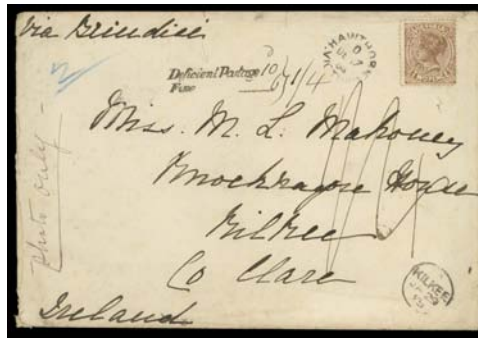 Via Brindisi
Deficient Postage 10
Fine 6 1/4
HAWTHORN
VICTORIA
Photo Only
Miss. M. L. Mahoney
House
Kilkee
Co Clare
Ireland
KILKEE